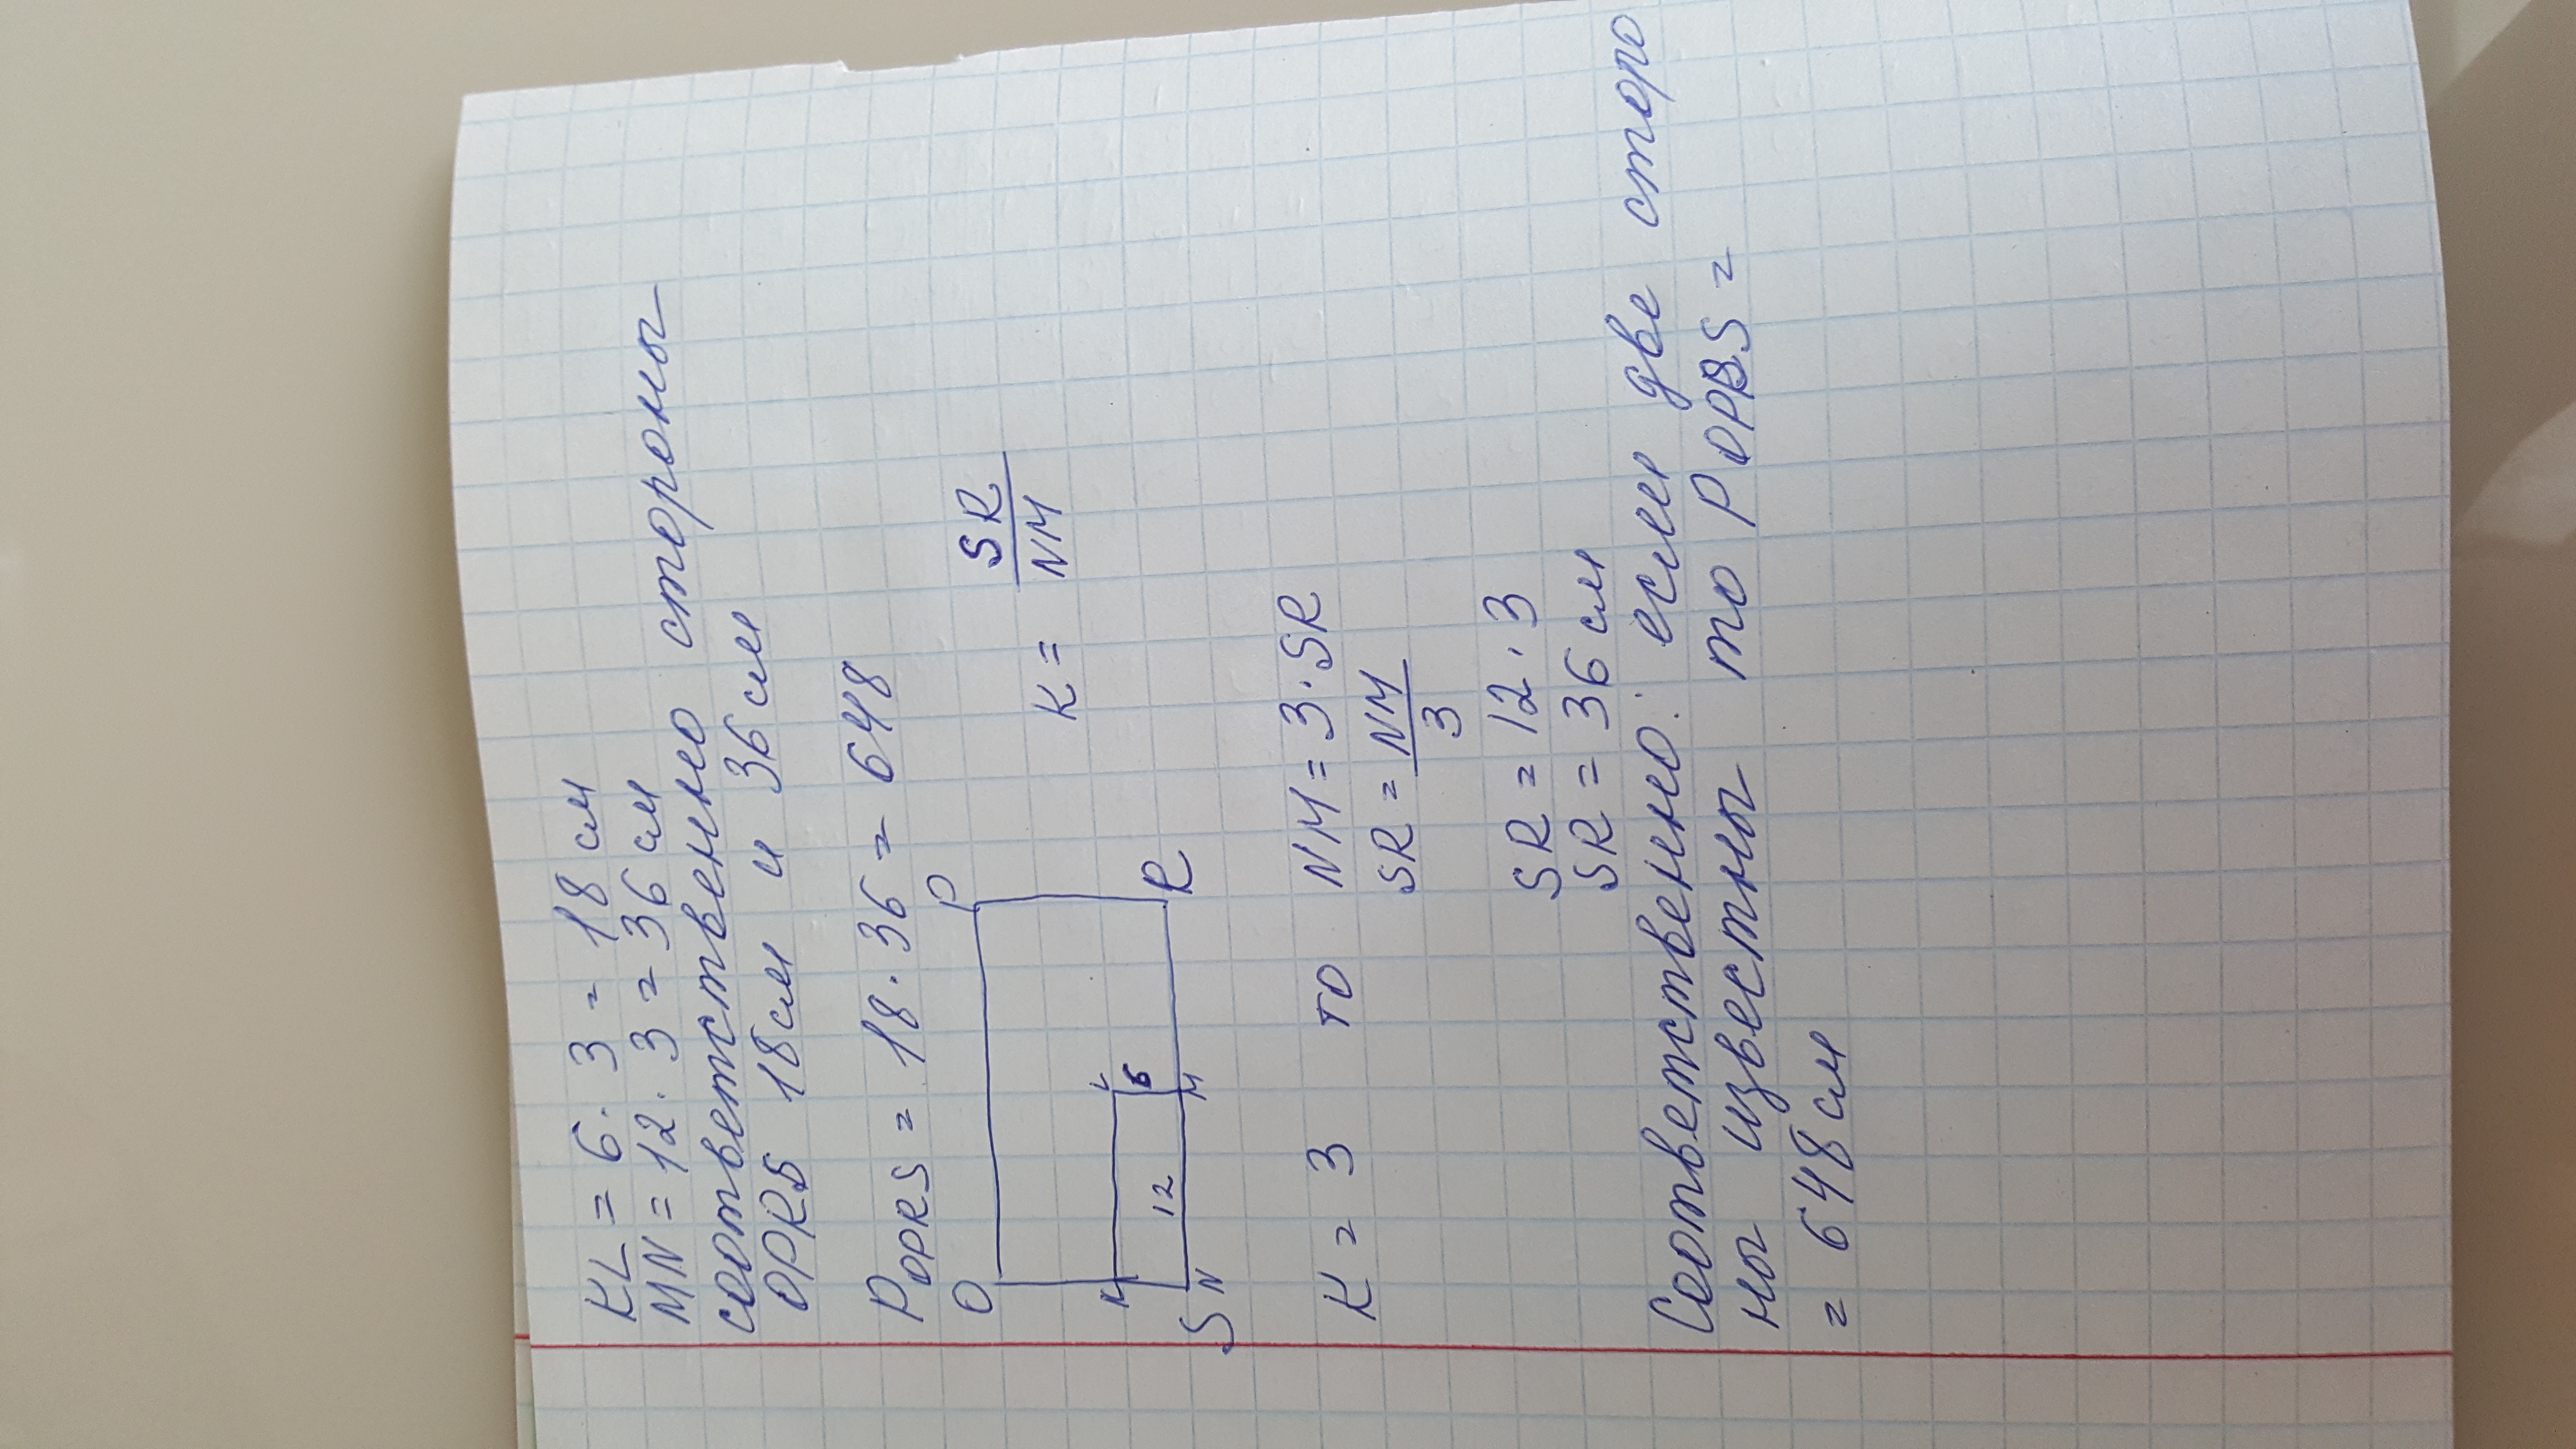 KL = 6 · 3 = 18 см
MN = 12 · 3 = 36 см
соответственно стороны
OPRS 18 см и 36 см
P OPRS = 18 · 36 = 648
O P
K = SR / NM
L
6
12
S N M R
K = 3 то NM = 3 · SR
SR = NM / 3
SR = 12 · 3
SR = 36 см
Соответственно: если две сторо
ны известны то P OPRS =
= 648 см